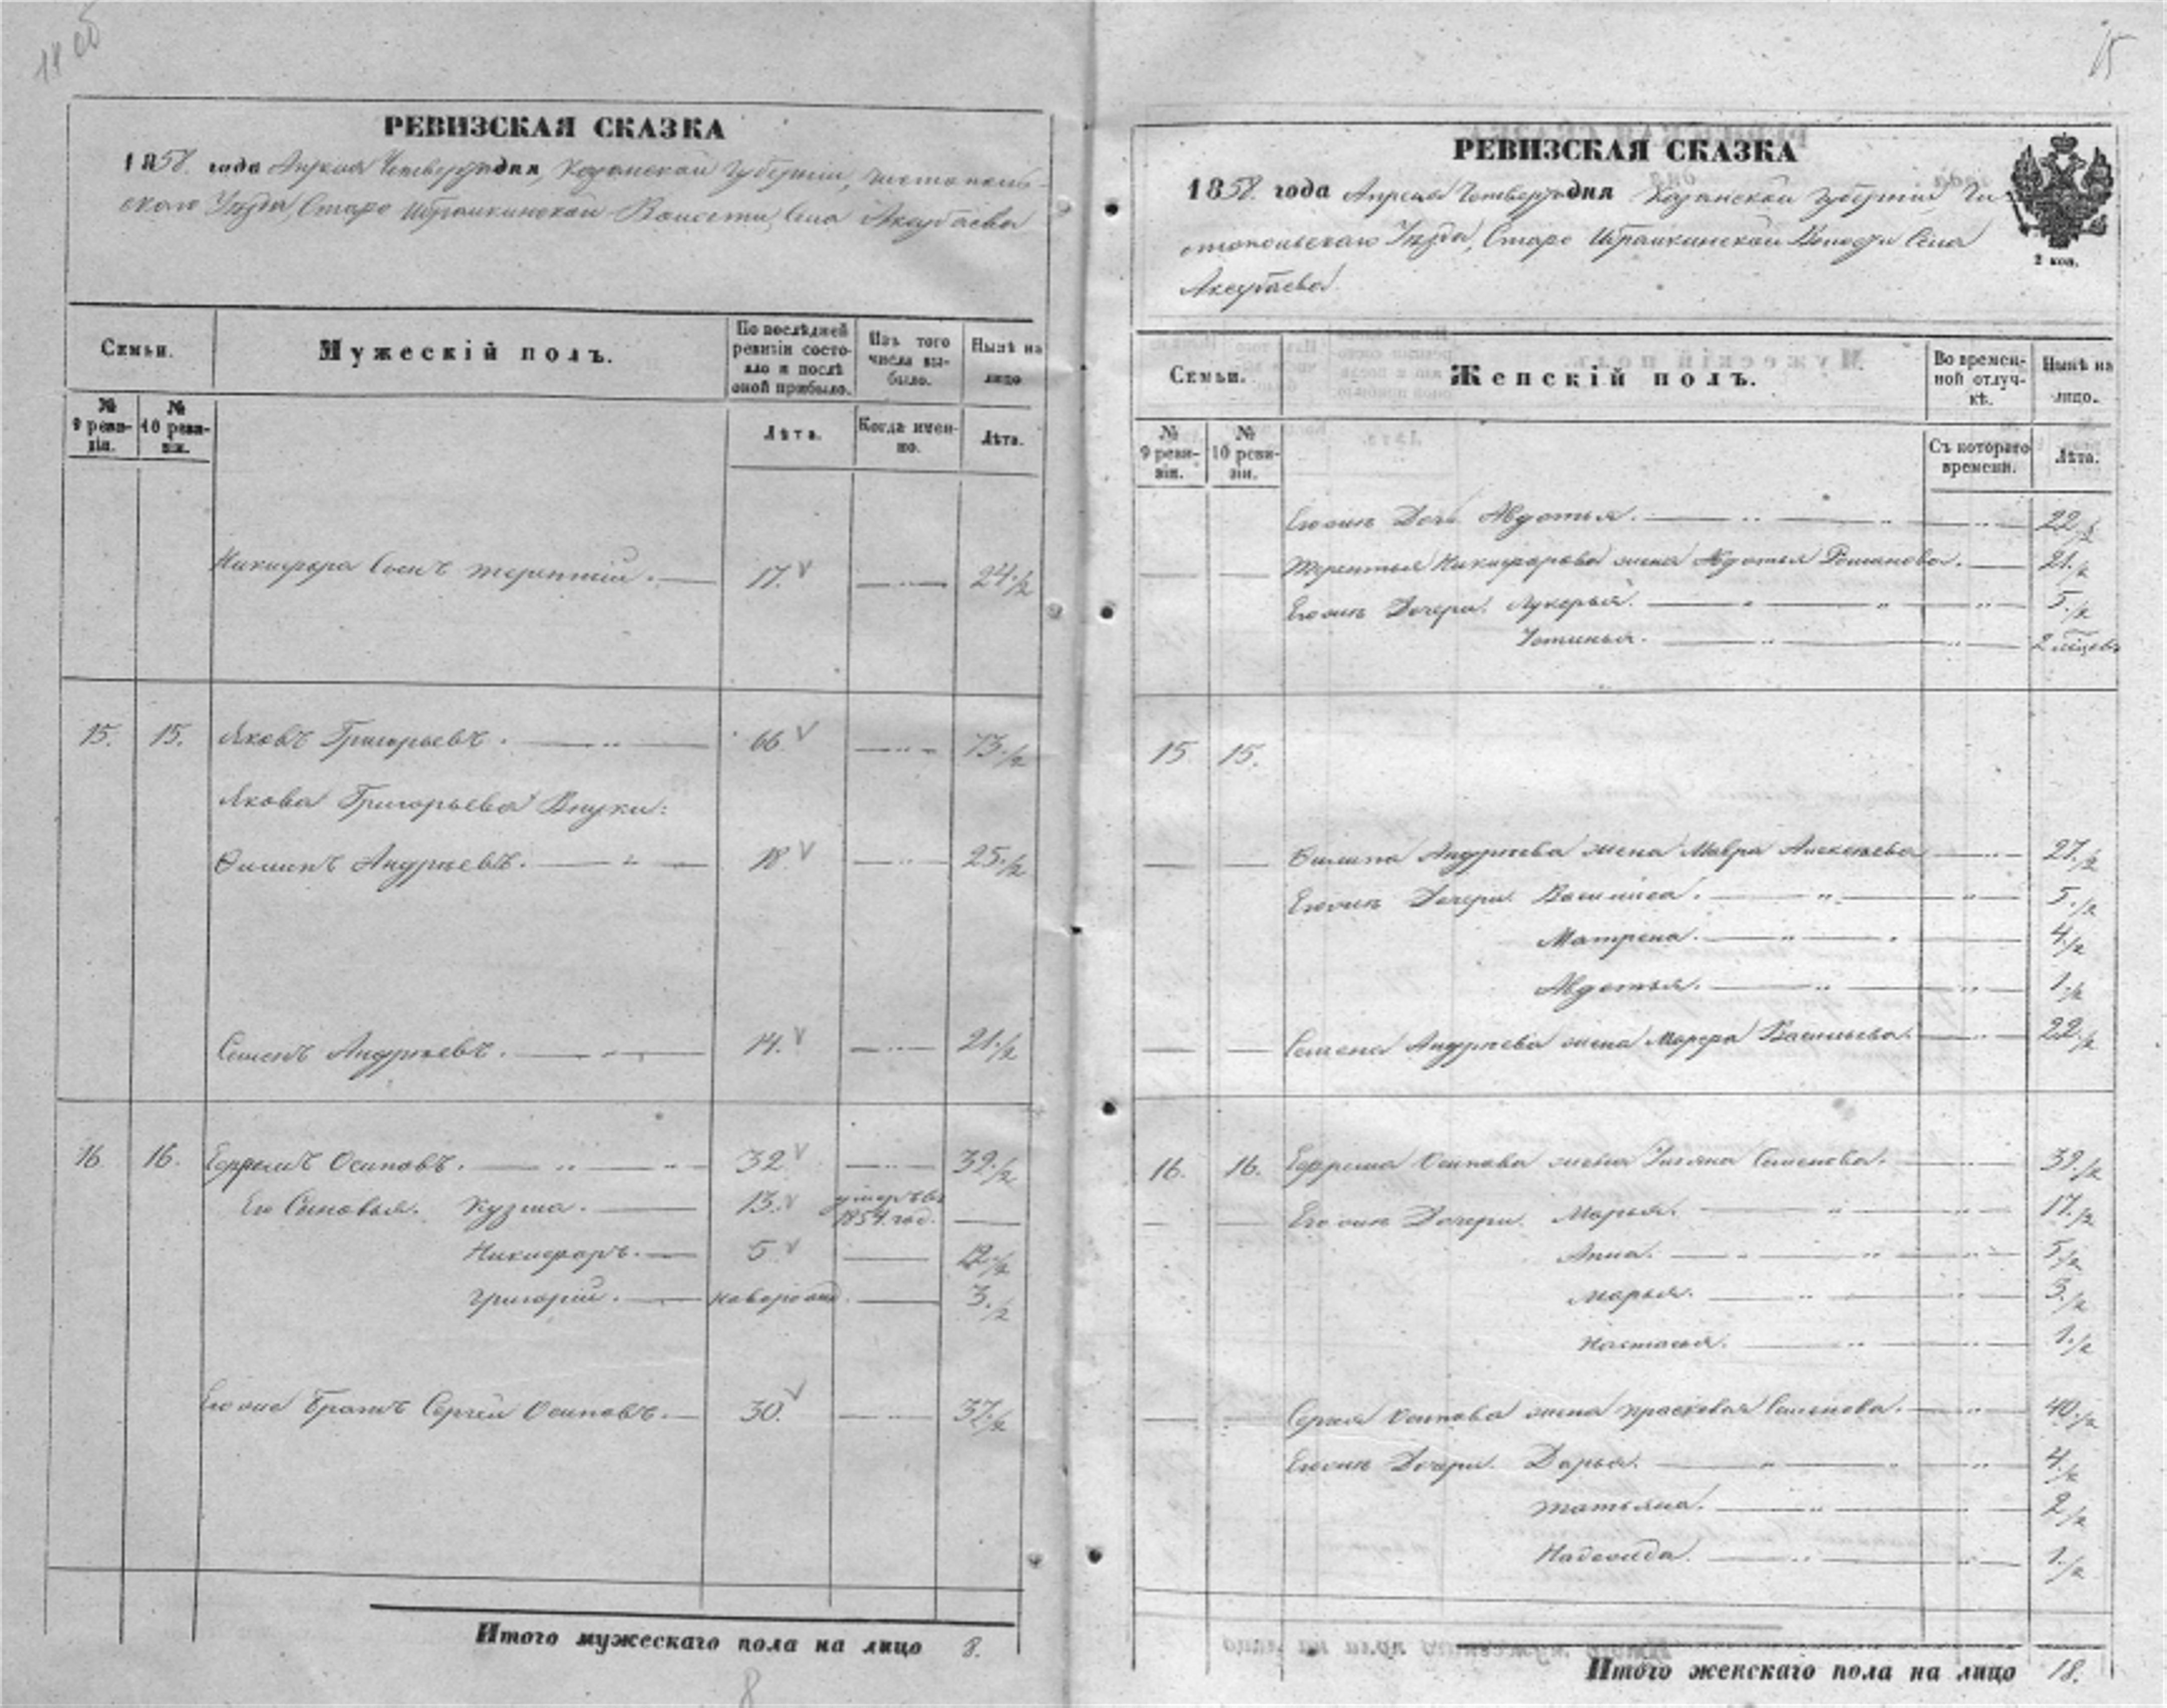 14 об
РЕВИЗСКАЯ СКАЗКА
1858. года Апреля Четвертаго дня, Казанской Губернии, Чистополь-
скаго Уезда, Старо Ибрайкинской Волости, Села Аксубаева
Семьи.
Мужескій полъ.
По послѣдней ревизіи состояло и послѣ оной прибыло.
Изъ того числа выбыло.
Нынѣ на лицо
№ 9 ревизіи.
№ 10 ревизіи.
Лѣта.
Когда именно.
Лѣта.
Никифора Сынъ Терентий. 17. 24./2
15. 15. Яковъ Григорьевъ. 66. 73./2
Якова Григорьева Внуки:
Филипъ Андреевъ. 18. 25./2
Семенъ Андреевъ. 14. 21./2
16 16. Ефремъ Осиповъ. 32. 39./2
Его Сыновья. Кузма. 13. умеръ въ 1854. год.
Никифоръ. 5. 12./2
Григорий. новорожд. 3./2
Егоже Братъ Сергей Осиповъ. 30. 37./2
Итого мужескаго пола на лицо 8.
8
15
РЕВИЗСКАЯ СКАЗКА
1858. года Апреля Четвертаго дня Казанской Губернии, Чи-
стопольскаго Уезда, Старо Ибрайкинской Волости Села
Аксубаева.
2 коп.
Семьи.
Женскій полъ.
Во временной отлучкѣ.
Нынѣ на лицо.
№ 9 ревизіи.
№ 10 ревизіи.
Съ котораго времени.
Лѣта.
Дочь Авдотья. 22./2
Терентья Никифорова жена Авдотья Романова. 21./2
Дочери. Лукерья. 5./2
Устинья. 2 месецов
15 15.
Филипа Андреева жена Мавра Алексеева 27./2
Дочери. Василиса. 5./2
Матрена. 4./2
Авдотья. 1./2
Семена Андреева жена Марфа Васильева. 22./2
16. 16. Ефрема Осипова жена Семенова. 39./2
Дочери. Марья. 17./2
Анна. 5/2
Марья. 3./2
Настасья. 1./2
Сергея Осипова жена Прасковья Семенова. 40./2
Дочери. Дарья. 4./2
Татьяна. 2./2
Надежда. 1./2
Итого женскаго пола на лицо 18.